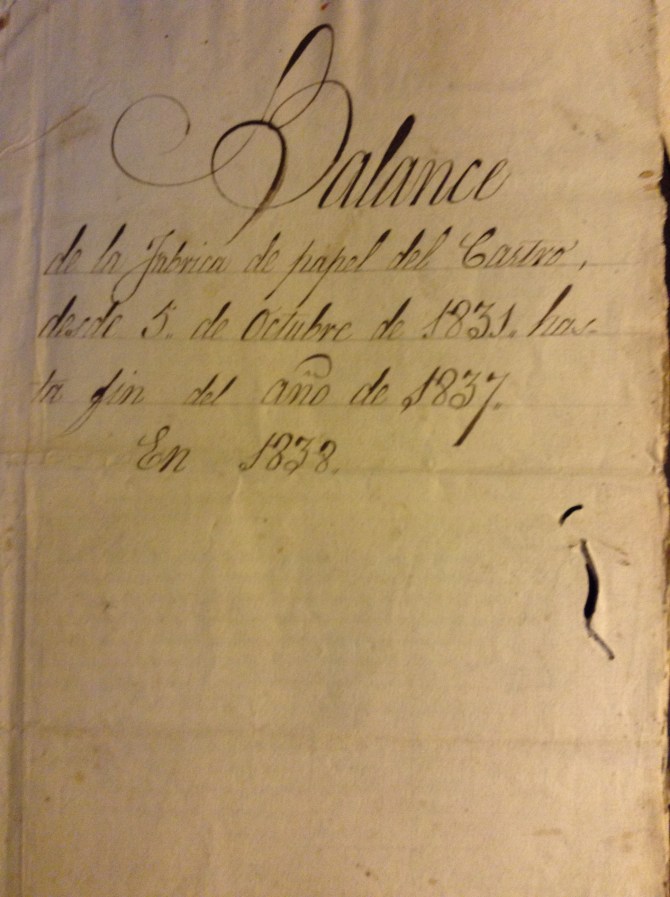 Balance
de la Fabrica de papel del Castro,
desde 5. de Octubre de 1831. has-
ta fin del año de 1837.
En 1838.